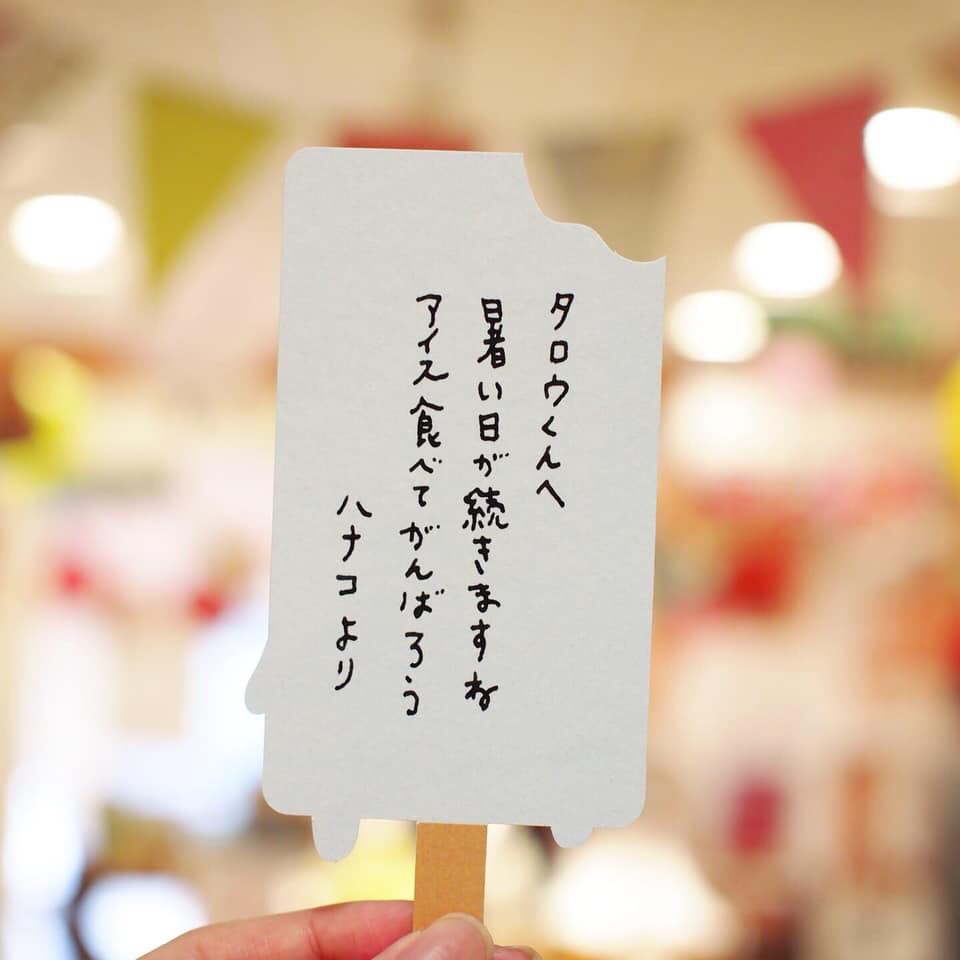 タロウくんへ
暑い日が続きますね
アイス食べてがんばろう
ハナコより